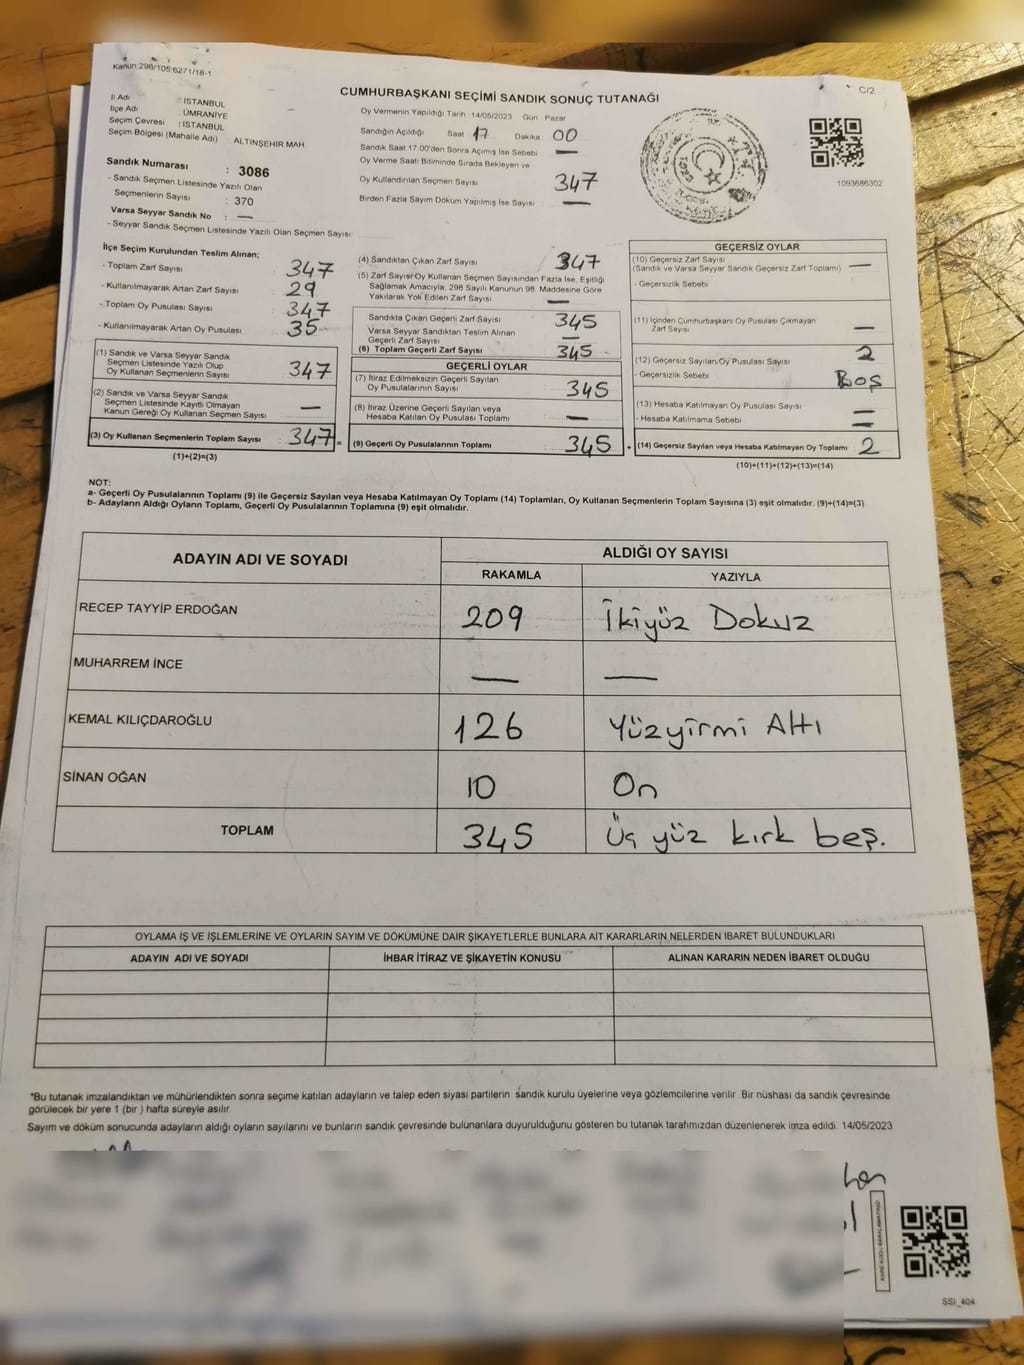 Kanun:298/105;6271/18-1
C/2
CUMHURBAŞKANI SEÇİMİ SANDIK SONUÇ TUTANAĞI
İl Adı : İSTANBUL
İlçe Adı : ÜMRANİYE
Seçim Çevresi : İSTANBUL
Seçim Bölgesi (Mahalle Adı) ALTINŞEHİR MAH.
Sandık Numarası : 3086
- Sandık Seçmen Listesinde Yazılı Olan
Seçmenlerin Sayısı : 370
Varsa Seyyar Sandık No : —
- Seyyar Sandık Seçmen Listesinde Yazılı Olan Seçmen Sayısı
Oy Vermenin Yapıldığı Tarih 14/05/2023 Gün : Pazar
Sandığın Açıldığı Saat 17 Dakika 00
Sandık Saat 17:00'den Sonra Açımış İse Sebebi —
Oy Verme Saati Bitiminde Sırada Bekleyen ve
Oy Kullandırılan Seçmen Sayısı 347
Birden Fazla Sayım Döküm Yapılmış İse Sayısı —
1093686302
İlçe Seçim Kurulundan Teslim Alınan;
- Toplam Zarf Sayısı : 347
- Kullanılmayarak Artan Zarf Sayısı : 29
- Toplam Oy Pusulası Sayısı : 347
- Kullanılmayarak Artan Oy Pusulası : 35
(1) Sandık ve Varsa Seyyar Sandık
Seçmen Listesinde Yazılı Olup
Oy Kullanan Seçmenlerin Sayısı 347
(2) Sandık ve Varsa Seyyar Sandık
Seçmen Listesinde Kayıtlı Olmayan
Kanun Gereği Oy Kullanan Seçmen Sayısı —
(3) Oy Kullanan Seçmenlerin Toplam Sayısı 347 =
(1)+(2)=(3)
(4) Sandıktan Çıkan Zarf Sayısı 347
(5) Zarf Sayısı Oy Kullanan Seçmen Sayısından Fazla İse, Eşitliği
Sağlamak Amacıyla, 298 Sayılı Kanunun 98. Maddesine Göre
Yakılarak Yok Edilen Zarf Sayısı —
Sandıkta Çıkan Geçerli Zarf Sayısı 345
Varsa Seyyar Sandıktan Teslim Alınan
Geçerli Zarf Sayısı —
(6) Toplam Geçerli Zarf Sayısı 345
GEÇERLİ OYLAR
(7) İtiraz Edilmeksizin Geçerli Sayılan
Oy Pusulalarının Sayısı 345
(8) İtiraz Üzerine Geçerli Sayılan veya
Hesaba Katılan Oy Pusulası Toplamı —
(9) Geçerli Oy Pusulalarının Toplamı 345 +
GEÇERSİZ OYLAR
(10) Geçersiz Zarf Sayısı
(Sandık ve Varsa Seyyar Sandık Geçersiz Zarf Toplamı) —
- Geçersizlik Sebebi
(11) İçinden Cumhurbaşkanı Oy Pusulası Çıkmayan
Zarf Sayısı —
(12) Geçersiz Sayılan Oy Pusulası Sayısı 2
- Geçersizlik Sebebi Boş
(13) Hesaba Katılmayan Oy Pusulası Sayısı —
- Hesaba Katılmama Sebebi —
(14) Geçersiz Sayılan veya Hesaba Katılmayan Oy Toplamı 2
(10)+(11)+(12)+(13)=(14)
NOT:
a- Geçerli Oy Pusulalarının Toplamı (9) ile Geçersiz Sayılan veya Hesaba Katılmayan Oy Toplamı (14) Toplamları, Oy Kullanan Seçmenlerin Toplam Sayısına (3) eşit olmalıdır. (9)+(14)=(3)
b- Adayların Aldığı Oyların Toplamı, Geçerli Oy Pusulalarının Toplamına (9) eşit olmalıdır.
ADAYIN ADI VE SOYADI
ALDIĞI OY SAYISI
RAKAMLA YAZIYLA
RECEP TAYYİP ERDOĞAN 209 İkiyüz Dokuz
MUHARREM İNCE — —
KEMAL KILIÇDAROĞLU 126 Yüzyirmi Altı
SİNAN OĞAN 10 On
TOPLAM 345 Üç yüz kırk beş.
OYLAMA İŞ VE İŞLEMLERİNE VE OYLARIN SAYIM VE DÖKÜMÜNE DAİR ŞİKAYETLERLE BUNLARA AİT KARARLARIN NELERDEN İBARET BULUNDUKLARI
ADAYIN ADI VE SOYADI İHBAR İTİRAZ VE ŞİKAYETİN KONUSU ALINAN KARARIN NEDEN İBARET OLDUĞU
*Bu tutanak imzalandıktan ve mühürlendikten sonra seçime katılan adayların ve talep eden siyasi partilerin sandık kurulu üyelerine veya gözlemcilerine verilir. Bir nüshası da sandık çevresinde
görülecek bir yere 1 (bir ) hafta süreyle asılır.
Sayım ve döküm sonucunda adayların aldığı oyların sayılarını ve bunların sandık çevresinde bulunanlara duyurulduğunu gösteren bu tutanak tarafımızdan düzenlenerek imza edildi. 14/05/2023
SSI_404